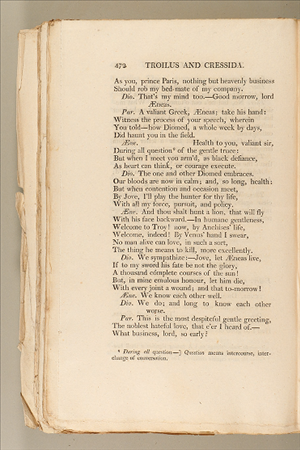 472 TROILUS AND CRESSIDA.
As you, prince Paris, nothing but heavenly business
Should rob my bed-mate of my company.
Dio. That's my mind too.—Good morrow, lord
Æneas.
Par. A valiant Greek, Æneas; take his hand:
Witness the process of your speech, wherein
You told—how Diomed, a whole week by days,
Did haunt you in the field.
Æne. Health to you, valiant sir,
During all question* of the gentle truce:
But when I meet you arm'd, as black defiance,
As heart can think, or courage execute.
Dio. The one and other Diomed embraces.
Our bloods are now in calm; and, so long, health:
But when contention and occasion meet,
By Jove, I'll play the hunter for thy life,
With all my force, pursuit, and policy.
Æne. And thou shalt hunt a lion, that will fly
With his face backward.—In humane gentleness,
Welcome to Troy! now, by Anchises' life,
Welcome, indeed! By Venus' hand I swear,
No man alive can love, in such a sort,
The thing he means to kill, more excellently.
Dio. We sympathize:—Jove, let Æneas live,
If to my sword his fate be not the glory,
A thousand cómplete courses of the sun!
But, in mine emulous honour, let him die,
With every joint a wound; and that to-morrow!
Æne. We know each other well.
Dio. We do; and long to know each other
worse.
Par. This is the most despiteful gentle greeting,
The noblest hateful love, that e'er I heard of.—
What business, lord, so early?
* During all question—] Question means intercourse, inter-
change of conversation.